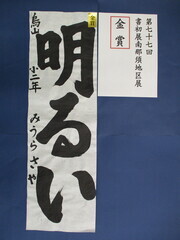 第七十七回
書初展南那須地区展
金賞
金賞
明るい
烏山
小二年
みうらさや